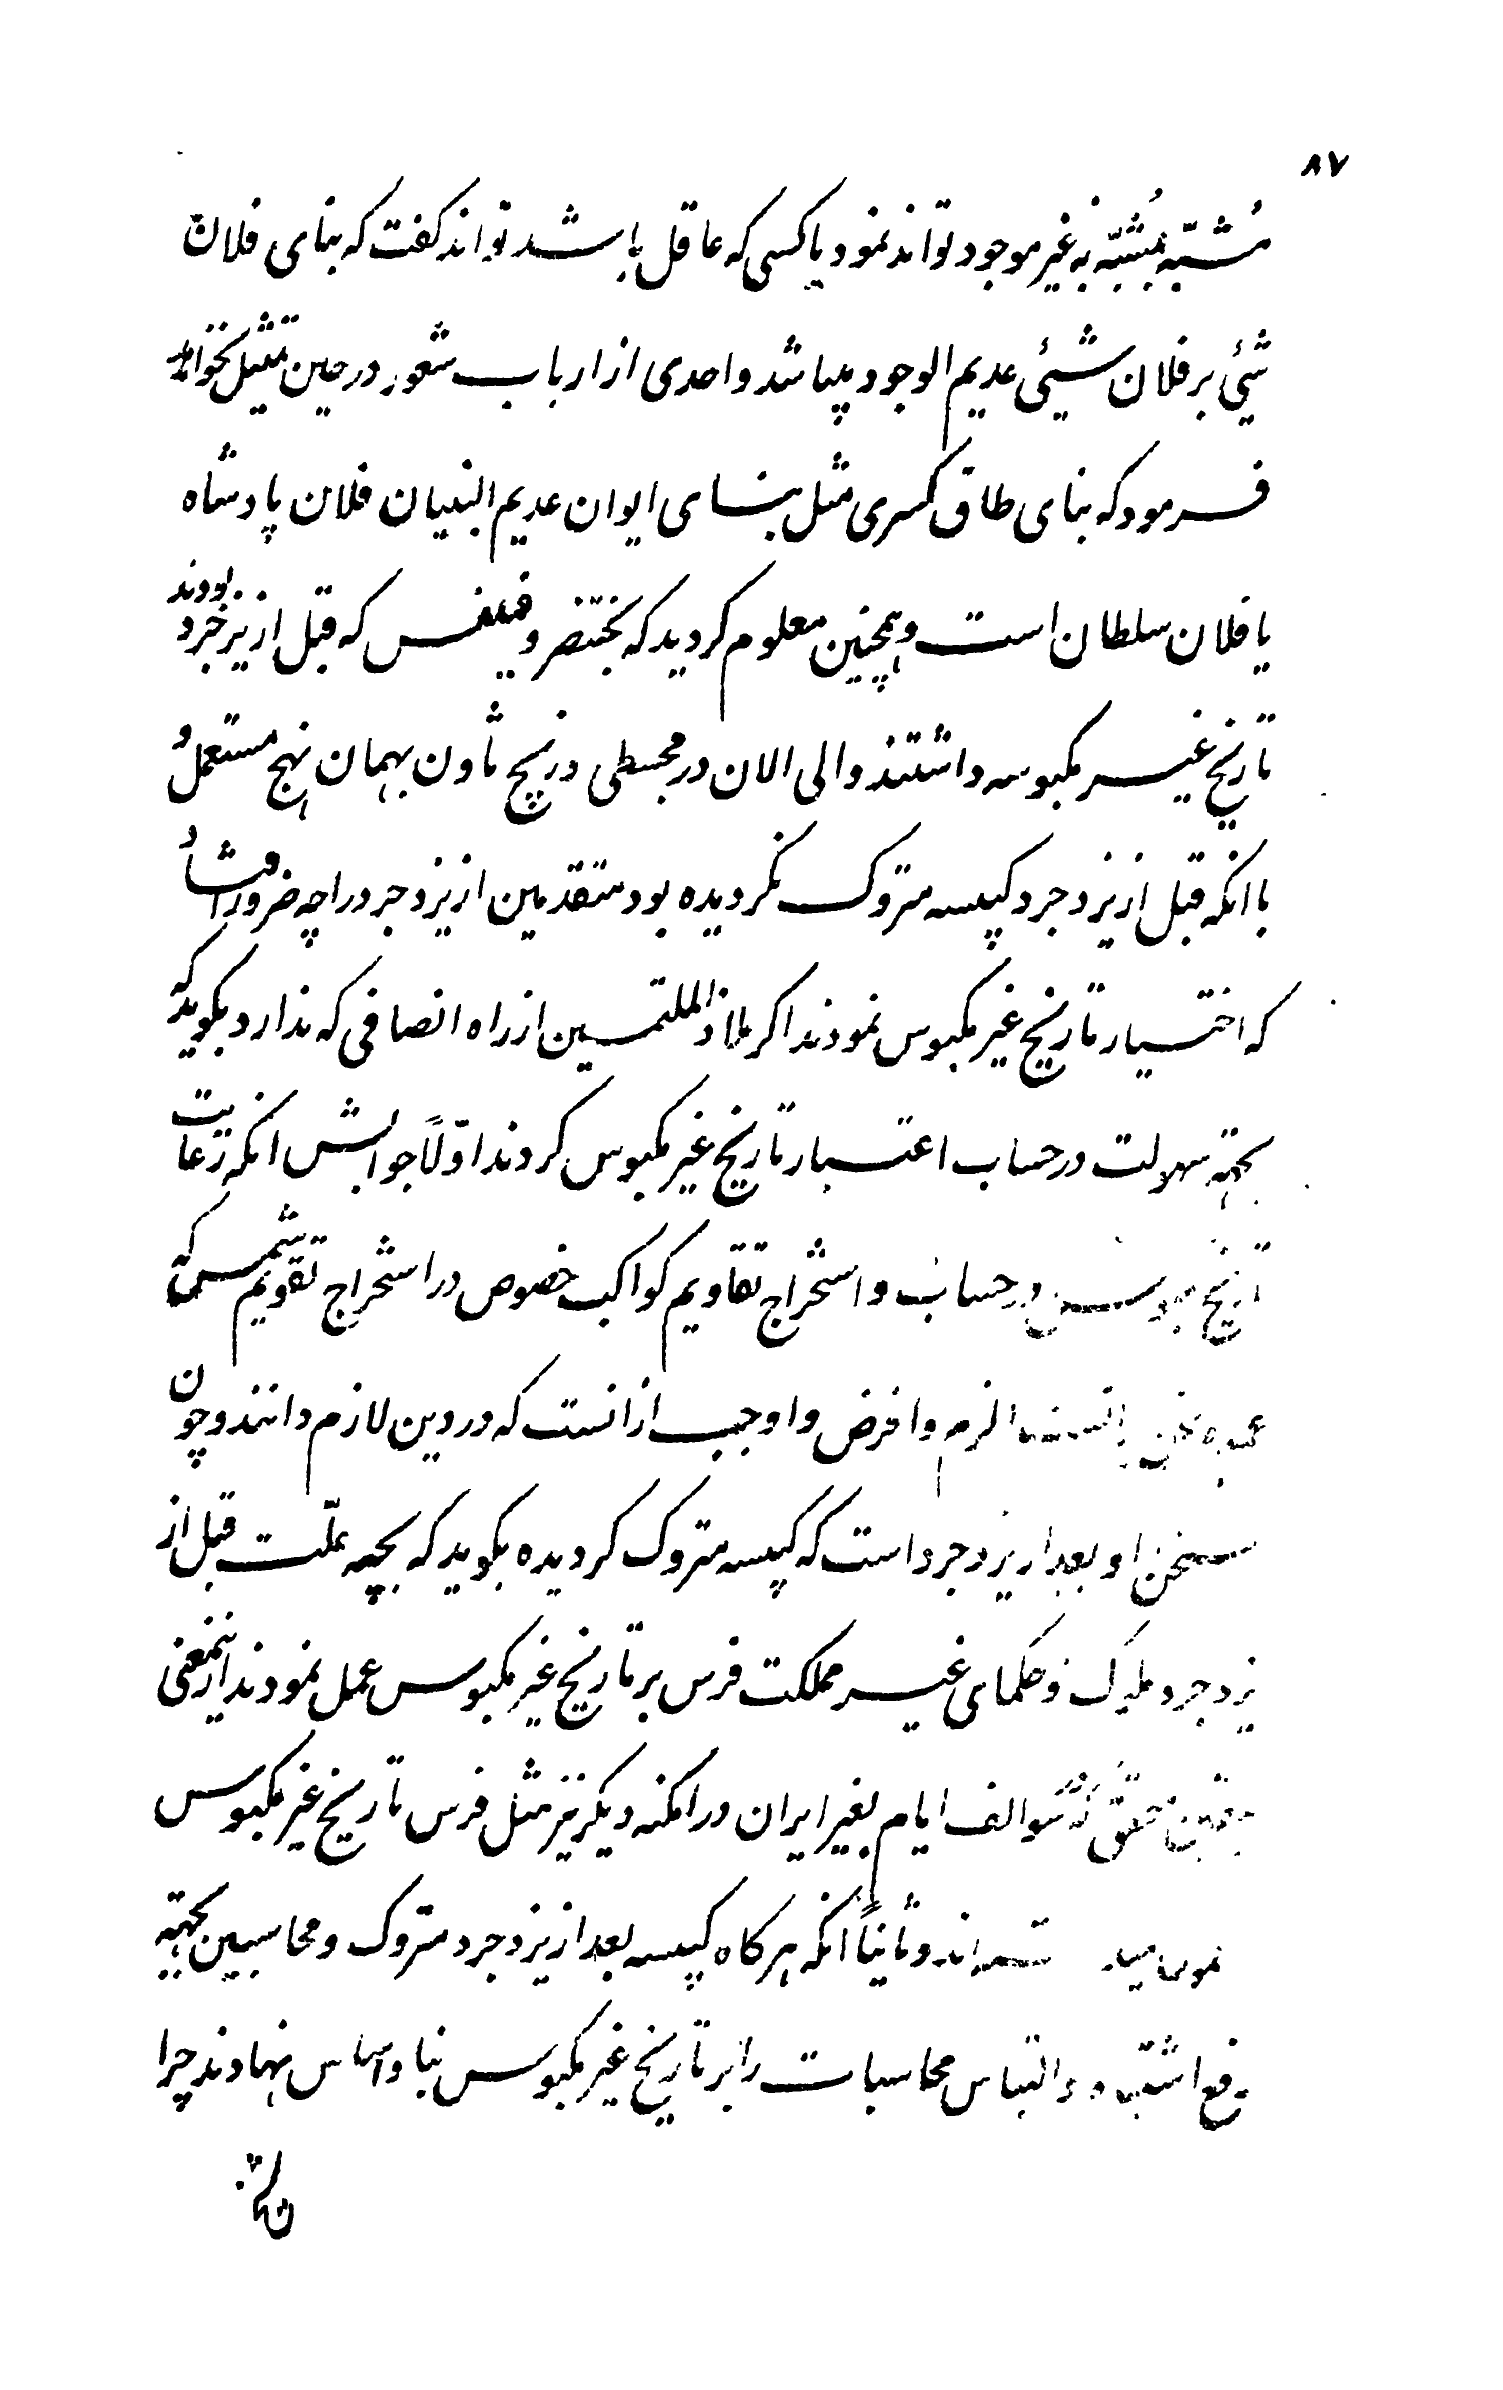 ۸۷
مُشبّه بمُشبّه به غیر موجود تواند نمود یا کسی که عاقل باشد تواند کفت که بنای فلان
شیٔ بر فلان شیئی عدیم الوجود میباشد واحدی از ارباب شعور در حین تمثیل نخواهد
فرمود که بنای طاق کسری مثل بنای ایوان عدیم البنیان فلان پادشاه
یا فلان سلطان است وهمچنین معلوم کردید که بختنصر و فیلفس که قبل از یزدجرد بودند
تاریخ غیر مکبوسه داشتند والی الان در مجسطی و زیج ثاون بهمان نهج مستعمل و
با انکه قبل از یزدجرد کپیسه متروک نکردیده بود متقدمین از یزدجرد را چه ضرور افتاد
که اختیار تاریخ غیر مکبوس نمودند اکر ملاذ الملتمسین از راه انصافی که ندارد بکوید که
بجهته سهولت در حساب اعتبار تاریخ غیر مکبوس کردند اوّلاً جوابش انکه رعایت
تاریخ در حساب و استخراج تقاویم کواکب خصوص در استخراج تقویم شمس که
الزم وافرض واوجب از انست که در دین لازم دانند وچون
سخن او بعد از یزدجرد است که کپیسه متروک کردیده بکوید که بچه علّت قبل از
یزدجرد ملوک وحکمای غیر مملکت فرس بر تاریخ غیر مکبوس عمل نمودند از اینمعنی
سوالف ایام بغیر ایران در امکنه دیکر نیز مثل فرس تاریخ غیر مکبوس
وثانیاً انکه هرکاه کپیسه بعد از یزدجرد متروک ومحاسبین بجهته
رفع اشتباه والتباس محاسبات را بر تاریخ غیر مکبوس بنا واساس نهادند چرا